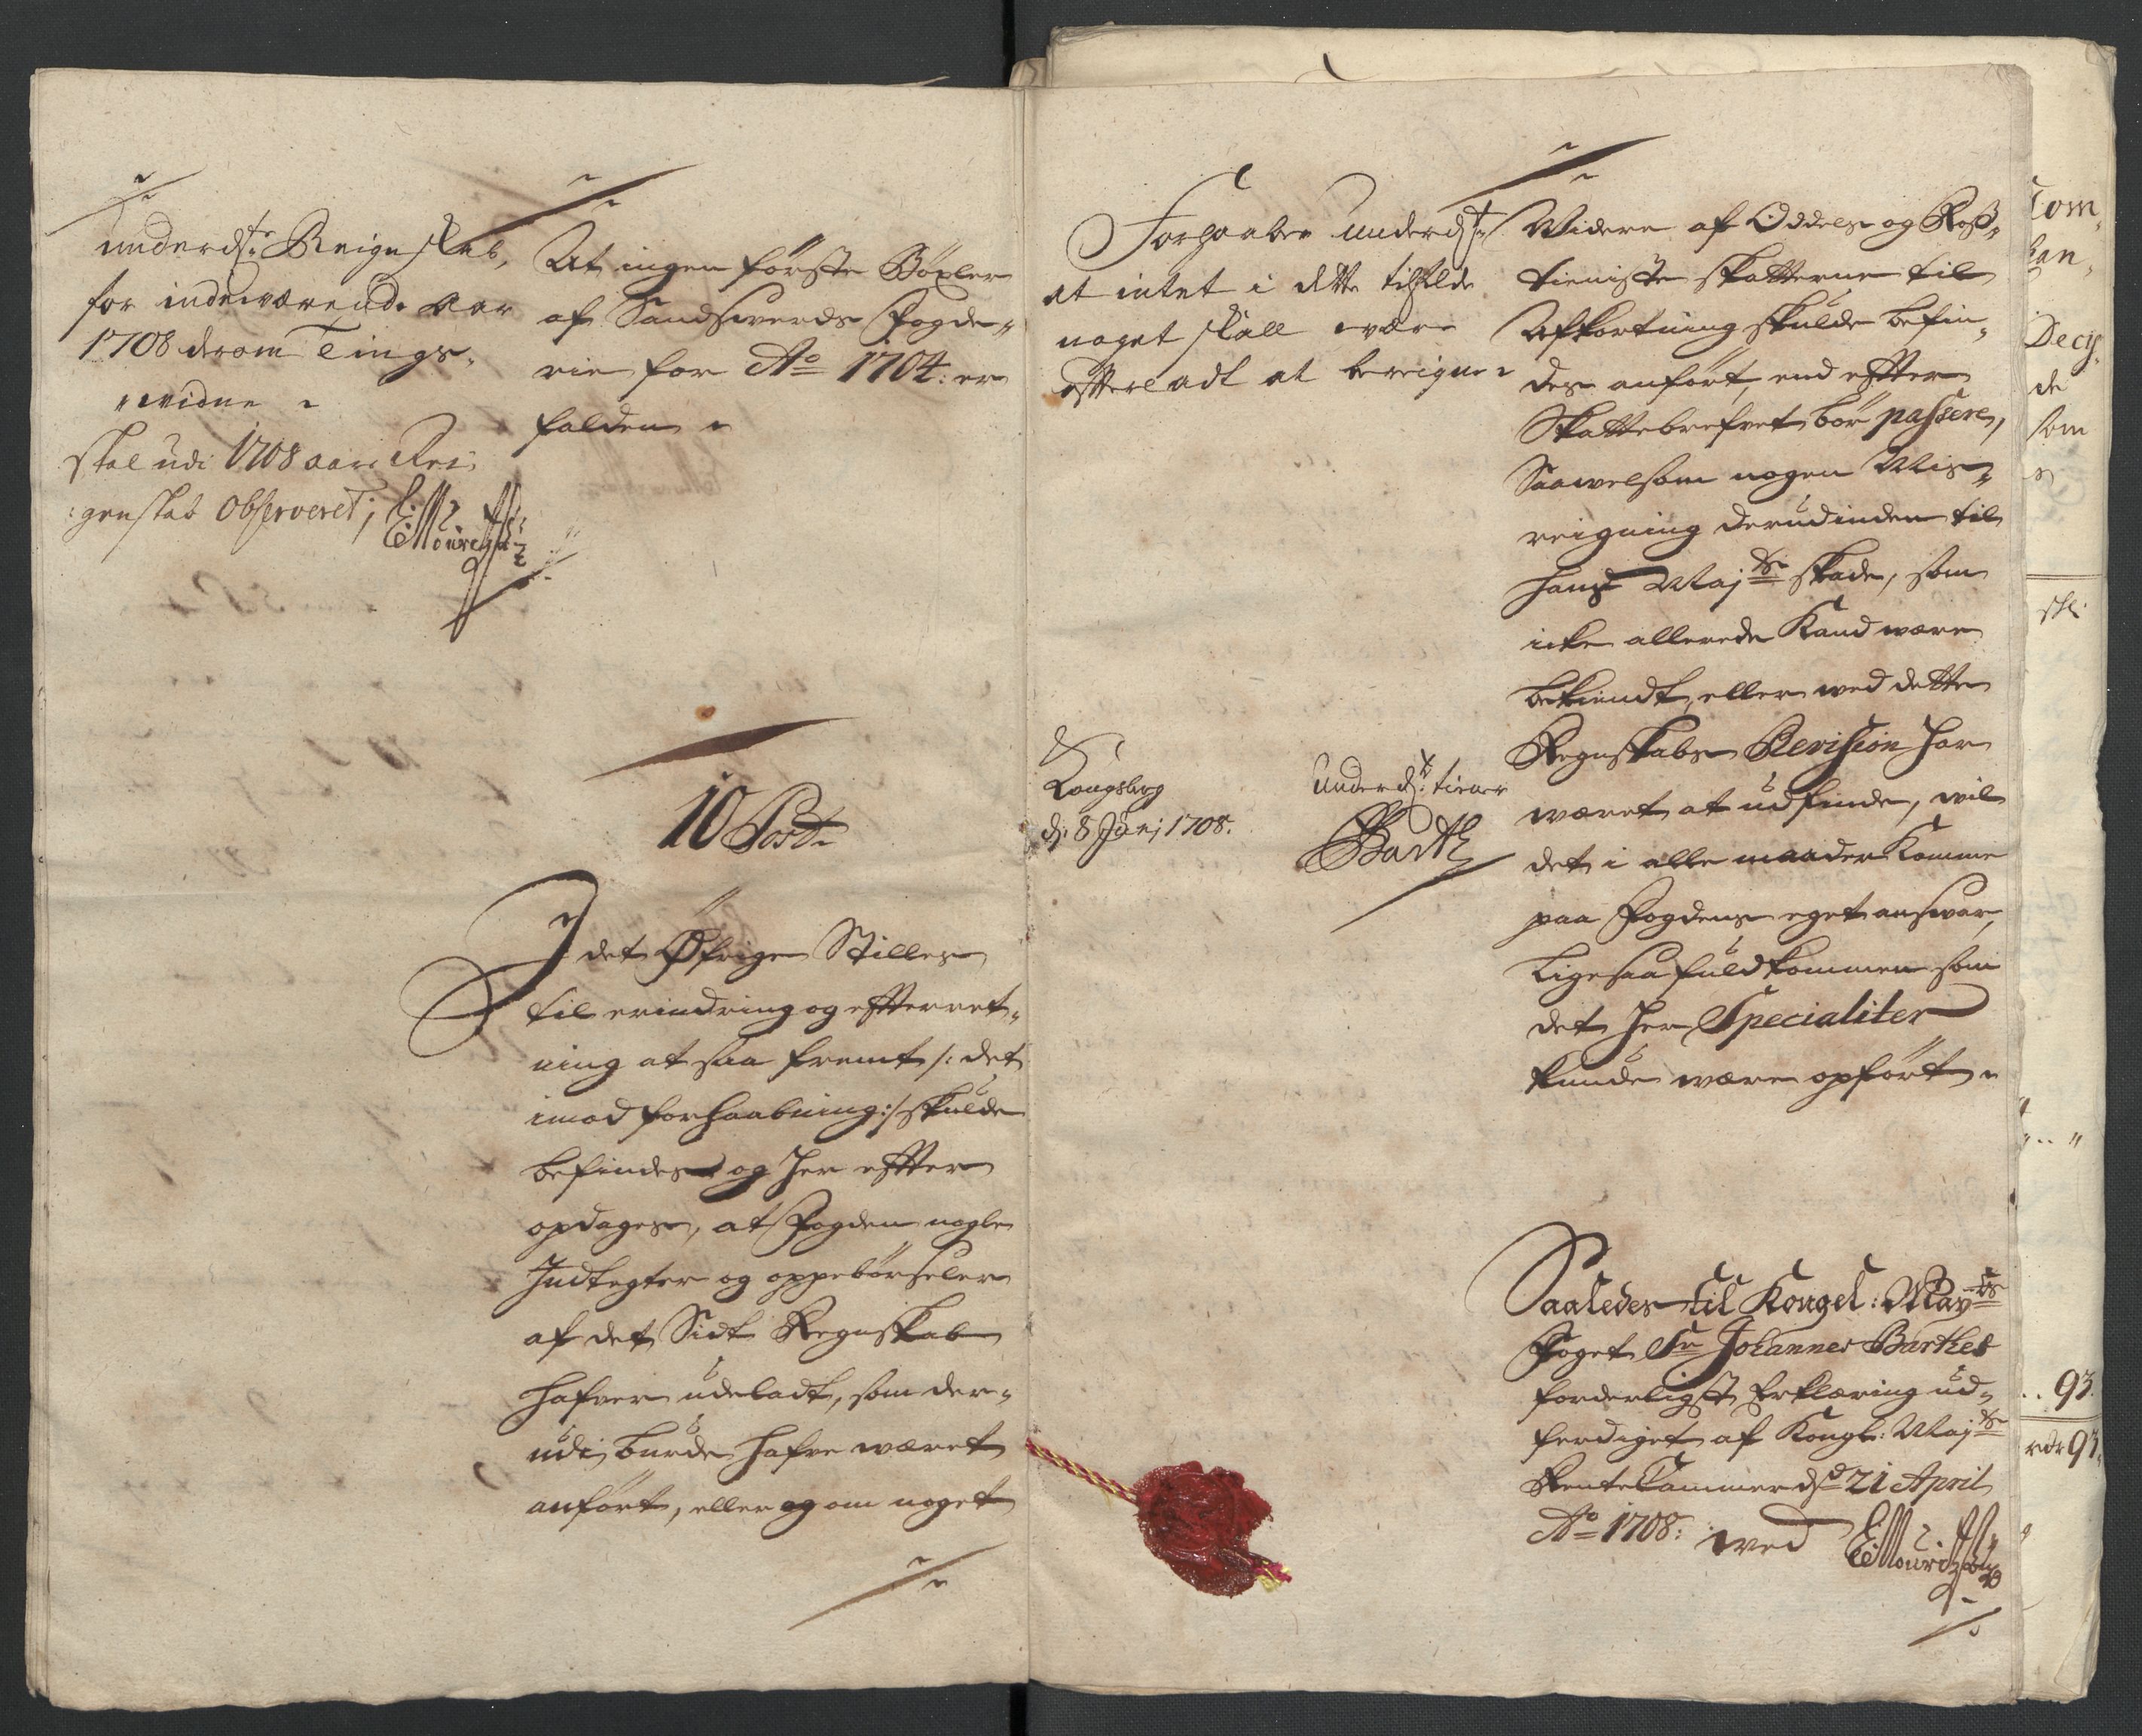 underd.te Reignskab,
for indeværende Aar
1708 derom Tings-
widne
skal udi 1708 aars Rei-
genskab observeret,
At ingen første Böxler
af Sandsverds Fogde-
rie for Ao 1704: er
falden
10 Post
I det Öfrige Stilles
til erindring og efterret-
ning at saa fremt /: det
imod forhaabning :/ skulde
befindes og her efter
opdages, at Fogden nogle
Indtegter og oppebörseler
af det Sidt Regnskab
hafver udeladt, som der-
udi burde hafve wæret
anfört, eller og om noget
Forhaaber underd.t
at intet i dette tilfelde
noget skall være
efterladt at bereigne
Kongsberg
d: 8 Junj 1708.
Underd.t tiener
Barth
Widere af Oddels- og Ross-
tieniste skatterne til
Afkortning skulde befin-
des anfört, end efter
Skattebrefvet bör passere,
Saawelsom nogen Mis-
reigning derudinden til
hans Maj.ts skade, som
icke allerede Kand være
bekiendt, eller wed dette
Regnskabs Revision har
wæret at udfinde, wil
det i alle maader komme
paa Fogdens eget answar,
ligesaa fuldkommen som
det her Specialiter
kunde være opfört
Saaledes til Kongel: May.ts
Foget Sr Johannes Barthes
forderligste Erklæring ud-
ferdiget af Kongl: Maj.ts
Rente Cammer d. 21 April
Ao 1708: wed
Com-
Decis-
de
som
93.
93.